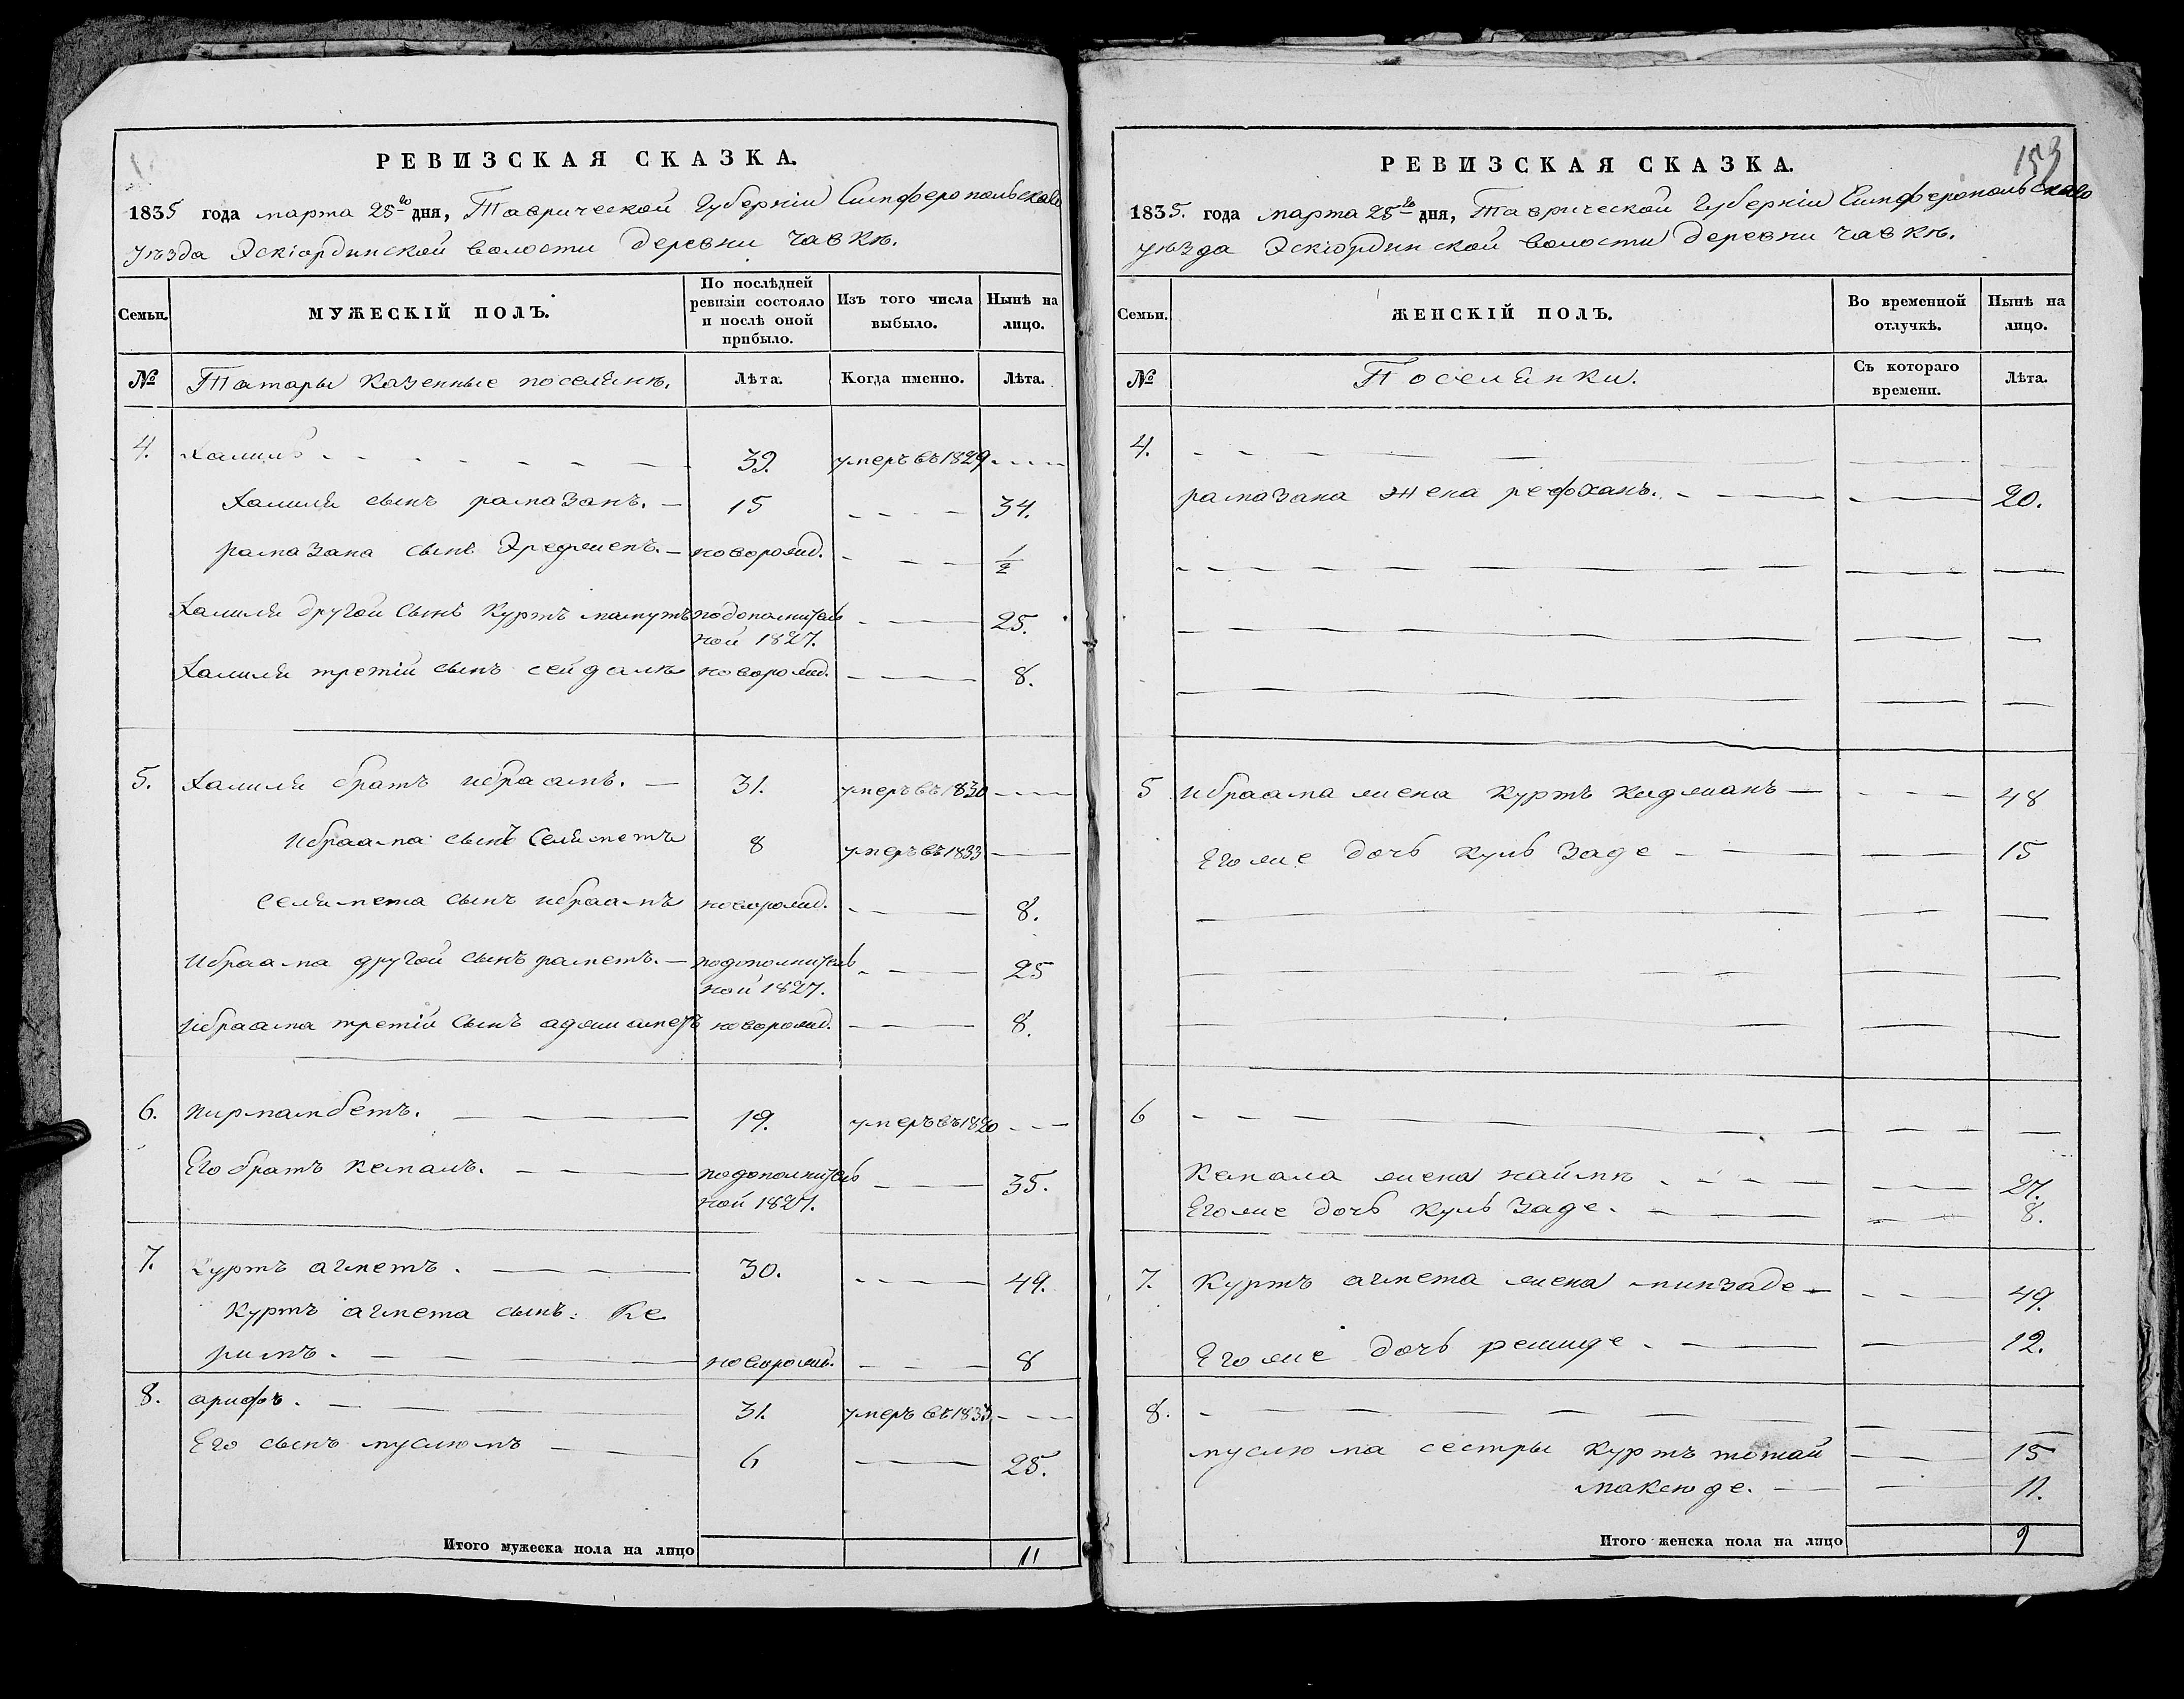 РЕВИЗСКАЯ СКАЗКА.
1835 года марта 28го дня, Таврической Губерніи Симферопольскаго
уѣзда Эскіординской волости деревни Чавкѣ.
Семьи.
МУЖЕСКІЙ ПОЛЪ.
По послѣдней ревизіи состояло и послѣ оной прибыло.
Изъ того числа выбыло.
Нынѣ на лицо.
№ Татары казенные поселянѣ. Лѣта. Когда именно. Лѣта.
4. Халиль 39. умеръ въ 1829
Халиля сынъ рамазанъ. 15 34.
рамазана сынъ новорожд. 1/2
Халиля другой сынъ Куртъ мамутъ по дополнитель
ной 1827. 25.
Халиля третій сынъ сейдали новорожд. 8.
5. Халиля братъ ибраамъ. 31. умеръ въ 1830
ибраама сынъ Селяметъ 8 умеръ въ 1833
Селямета сынъ ибраамъ новорожд. 8.
ибраама другой сынъ раметъ. по дополнитель
ной 1827. 25
ибраама третій сынъ новорожд. 8.
6. пирмамбетъ. 19. умеръ въ 1820
Его братъ кемалъ. по дополнитель
ной 1827. 35.
7. Куртъ агметъ. 30. 49.
Куртъ агмета сынъ: Ке
римъ. новорожд. 8
8. арифъ. 31. умеръ въ 1833
Его сынъ муслюмъ 6 25.
Итого мужеска пола на лицо 11
153
РЕВИЗСКАЯ СКАЗКА.
1835. года марта 28го дня, Таврической Губерніи Симферопольскаго
уѣзда Эскіординской волости деревни Чавкѣ.
Семьи.
ЖЕНСКІЙ ПОЛЪ.
Во временной отлучкѣ.
Нынѣ на лицо.
№ Поселянки. Съ котораго времени. Лѣта.
4.
рамазана жена рефханъ. 20.
5 ибраама жена Куртъ 48
Его же дочь куль Заде 15
6
Кемала жена найме 27.
Его же дочь куль Заде. 8.
7. Куртъ агмета жена минзаде 49.
Его же дочь решиде. 12.
8.
муслюма сестры Куртъ тотай 15
максюде. 11.
Итого женска пола на лицо 9